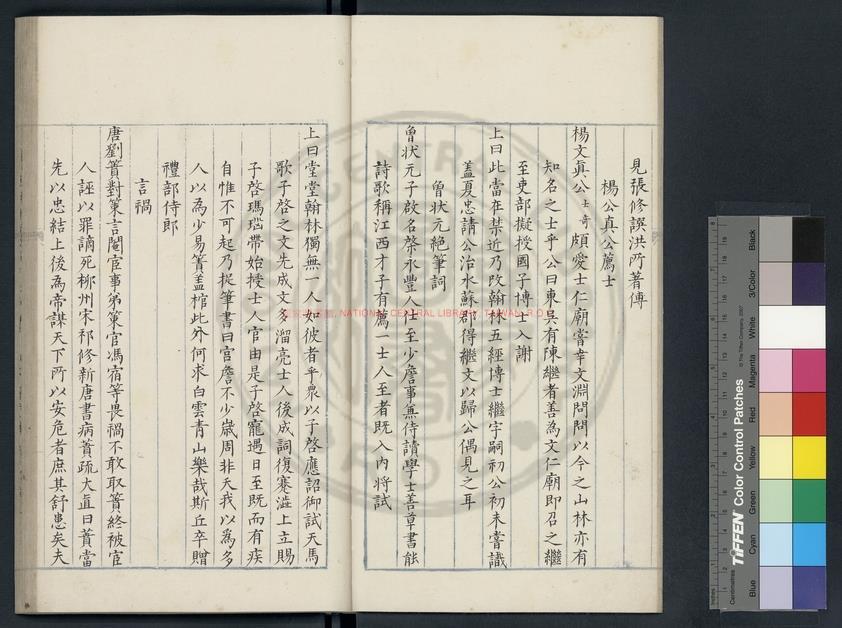 見張修譔洪所著傳
楊公真公薦士
楊文真公士奇頗愛士仁廟嘗幸文淵閣問以今之山林亦有
知名之士乎公曰東吳有陳繼者善為文仁廟即召之繼
至吏部擬授國子博士入謝
上曰此當在禁近乃改翰林五經博士繼字嗣初公初未嘗識
蓋夏忠請公治水蘇郡得繼文以歸公偶見之耳
曾狀元絕筆詞
曾狀元子啟名棨永豐人仕至少詹事無侍讀學士善草書能
詩歌稱江西才子有薦一士人至者既入內將試
上曰堂堂翰林獨無一人如彼者乎眾以子啓應詔御試天馬
歌子啓之文先成文多溜亮士人後成詞復蹇澁上立賜
子啓瑪瑙帶始授士人官由是子啓寵遇日至既而有疾
自惟不可起乃揑筆書曰官詹不少歲周非夭我以為多
人以為少易簀蓋棺此外何求白雲青山樂哉斯丘卒贈
禮部侍郎
言禍
唐劉蕡對策言閹宦事第策官馮宿等畏禍不敢取蕡終被宦
人誣以罪謫死柳州宋祁修新唐書病蕡疏大直曰蕡當
先以忠結上後為帝謀天下所以安危者庶其舒患矣夫
NATIONAL CENTRAL LIBRARY, TAIWAN, R.O.C
TIFFEN Color Control Patches
© The Tiffen Company, 2007
Inches
Centimetres
Blue
Cyan
Green
Yellow
Red
Magenta
White
3/Color
Black